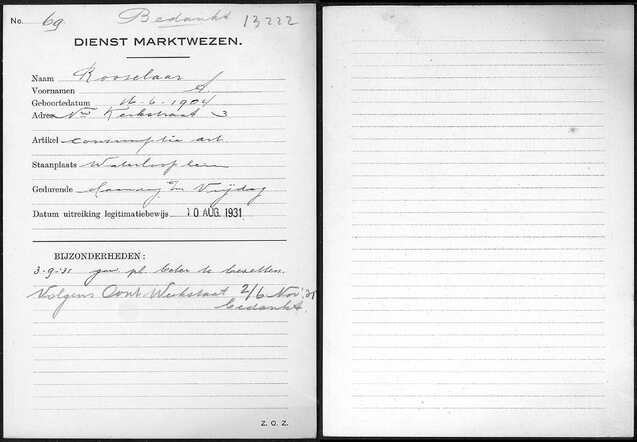 No. 69 Bedankt 13222
DIENST MARKTWEZEN.
Naam Rooselaar
Voornamen A.
Geboortedatum 16-6-1904
Adres Nwe Kerkstraat 3
Artikel consumptie art.
Staanplaats Waterlooplein
Gedurende Maandag t/m Vrijdag
Datum uitreiking legitimatiebewijs 10 AUG. 1931
BIJZONDERHEDEN:
3-9-31 pl. beter te bezetten.
Volgens Cont. Werkstaat 2/6 Nov '31
bedankt.
Z. O. Z.